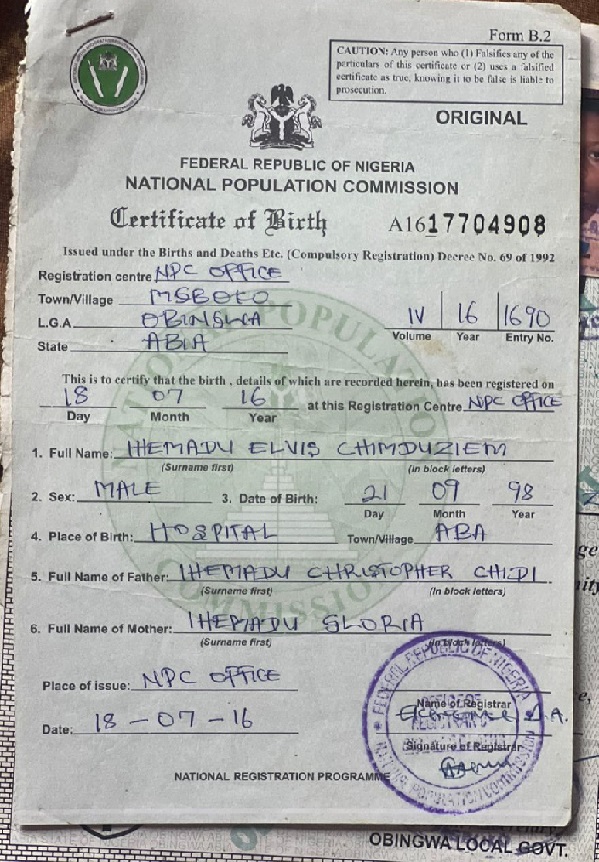 Form B.2
CAUTION: Any person who (1) Falsifies any of the
particulars of this certificate or (2) uses a falsified
certificate as true, knowing it to be false is liable to
prosecution.
ORIGINAL
FEDERAL REPUBLIC OF NIGERIA
NATIONAL POPULATION COMMISSION
Certificate of Birth A1617704908
Issued under the Births and Deaths Etc. (Compulsory Registration) Decree No. 69 of 1992
Registration centre NPC OFFICE
Town/Village MGBOKO
L.G.A. OBINGWA IV 16 1690
Volume Year Entry No.
State ABIA
This is to certify that the birth , details of which are recorded herein, has been registered on
18 07 16 at this Registration Centre NPC OFFICE
Day Month Year
1. Full Name: IHEMADU ELVIS CHIMDUZIEM
(Surname first) (in block letters)
2. Sex: MALE 3. Date of Birth: 21 09 98
Day Month Year
4. Place of Birth: HOSPITAL Town/Village ABA
5. Full Name of Father: IHEMADU CHRISTOPHER CHIDI
(Surname first) (In block letters)
6. Full Name of Mother: IHEMADU GLORIA
(Surname first) (In block letters)
Place of issue: NPC OFFICE
Name of Registrar
Date: 18-07-16
Signature of Registrar
FEDERAL REPUBLIC OF NIGERIA
NATIONAL POPULATION COMMISSION
NATIONAL REGISTRATION PROGRAMME
OBINGWA LOCAL GOVT.